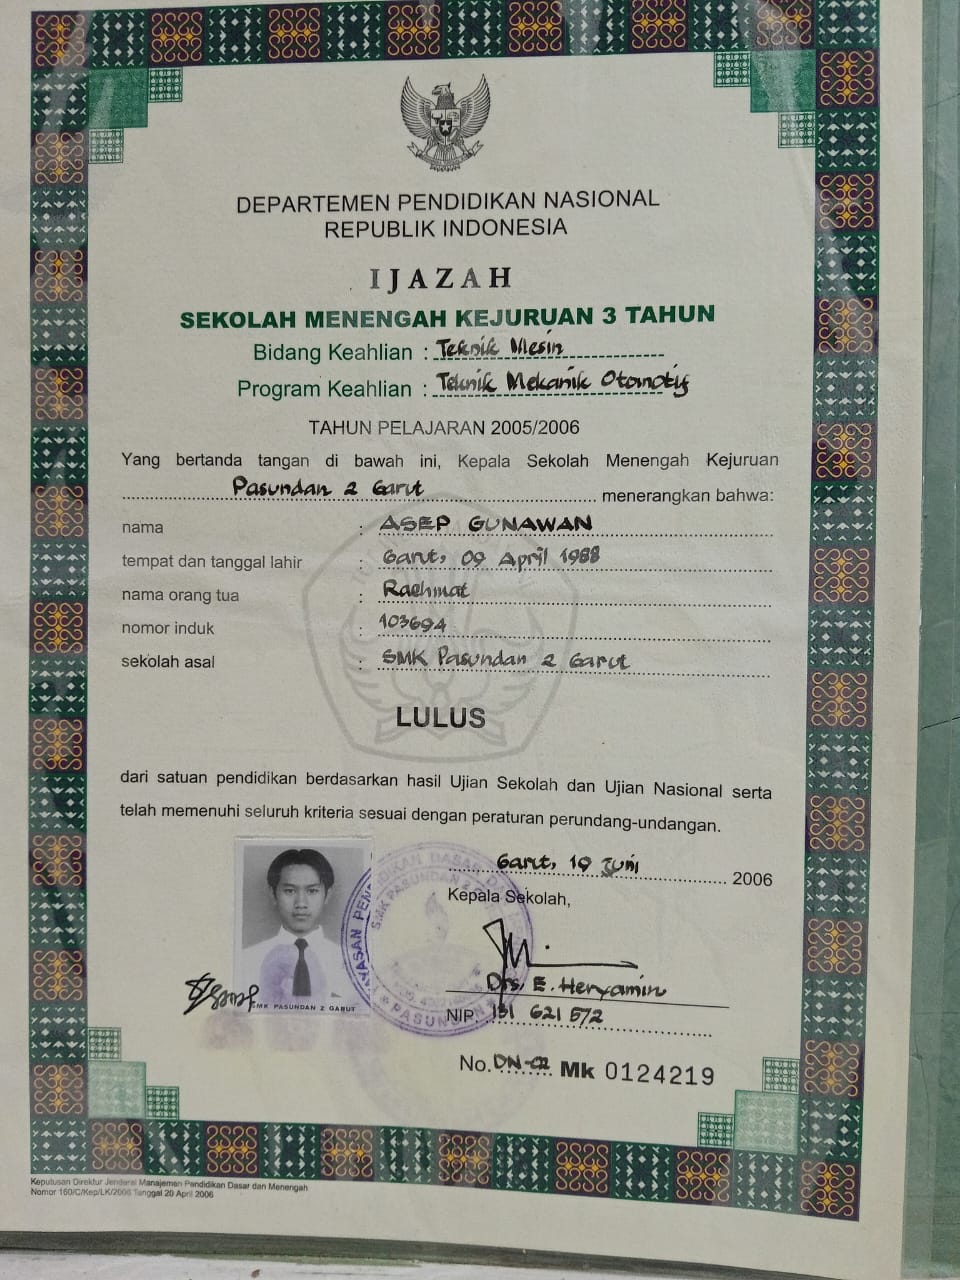 DEPARTEMEN PENDIDIKAN NASIONAL
REPUBLIK INDONESIA
IJAZAH
SEKOLAH MENENGAH KEJURUAN 3 TAHUN
Bidang Keahlian : Teknik Mesin
Program Keahlian : Teknik Mekanik Otomotif
TAHUN PELAJARAN 2005/2006
Yang bertanda tangan di bawah ini, Kepala Sekolah Menengah Kejuruan
Pasundan 2 Garut menerangkan bahwa:
nama : ASEP GUNAWAN
tempat dan tanggal lahir : Garut, 09 April 1988
nama orang tua : Rachmat
nomor induk : 103694
sekolah asal : SMK Pasundan 2 Garut
LULUS
dari satuan pendidikan berdasarkan hasil Ujian Sekolah dan Ujian Nasional serta
telah memenuhi seluruh kriteria sesuai dengan peraturan perundang-undangan.
Garut, 19 Juni 2006
Kepala Sekolah,
Drs. E. Heryamin
NIP. 131 621 572
SMK PASUNDAN 2 GARUT
No. DN-02 Mk 0124219
Keputusan Direktur Jenderal Manajemen Pendidikan Dasar dan Menengah
Nomor 160/C/Kep/LK/2006 Tanggal 20 April 2006